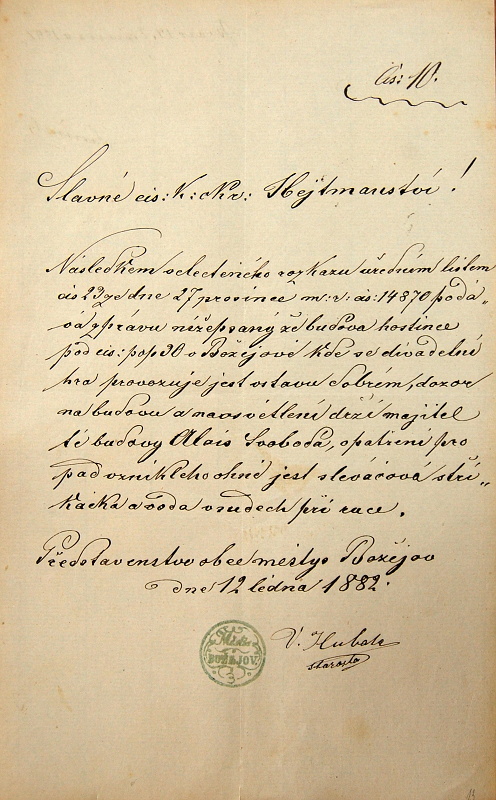 čís: 10.
Slavné cis: k: okr: Hejtmanství!
Následkem velectěného rozkazu úředním listem
čís 23 ze dne 27 prosince m: r: čís: 14870 podá„
vá zprávu nížepsaný že budova hostince
pod čís: pop 30 v Božejově kde se divadelní
hra provozuje jest v stavu dobrém, dozor
na budovu a na osvětlení drží majitel
té budovy Alois Svoboda, opatření pro
pad vzniklého ohně jest slévačová stří„
kačka a voda v sudech při ruce.
Představenstvo obce městys Božejov
dne 12 ledna 1882.
V. Hubek
starosta
BOŽEJOV.
3
13